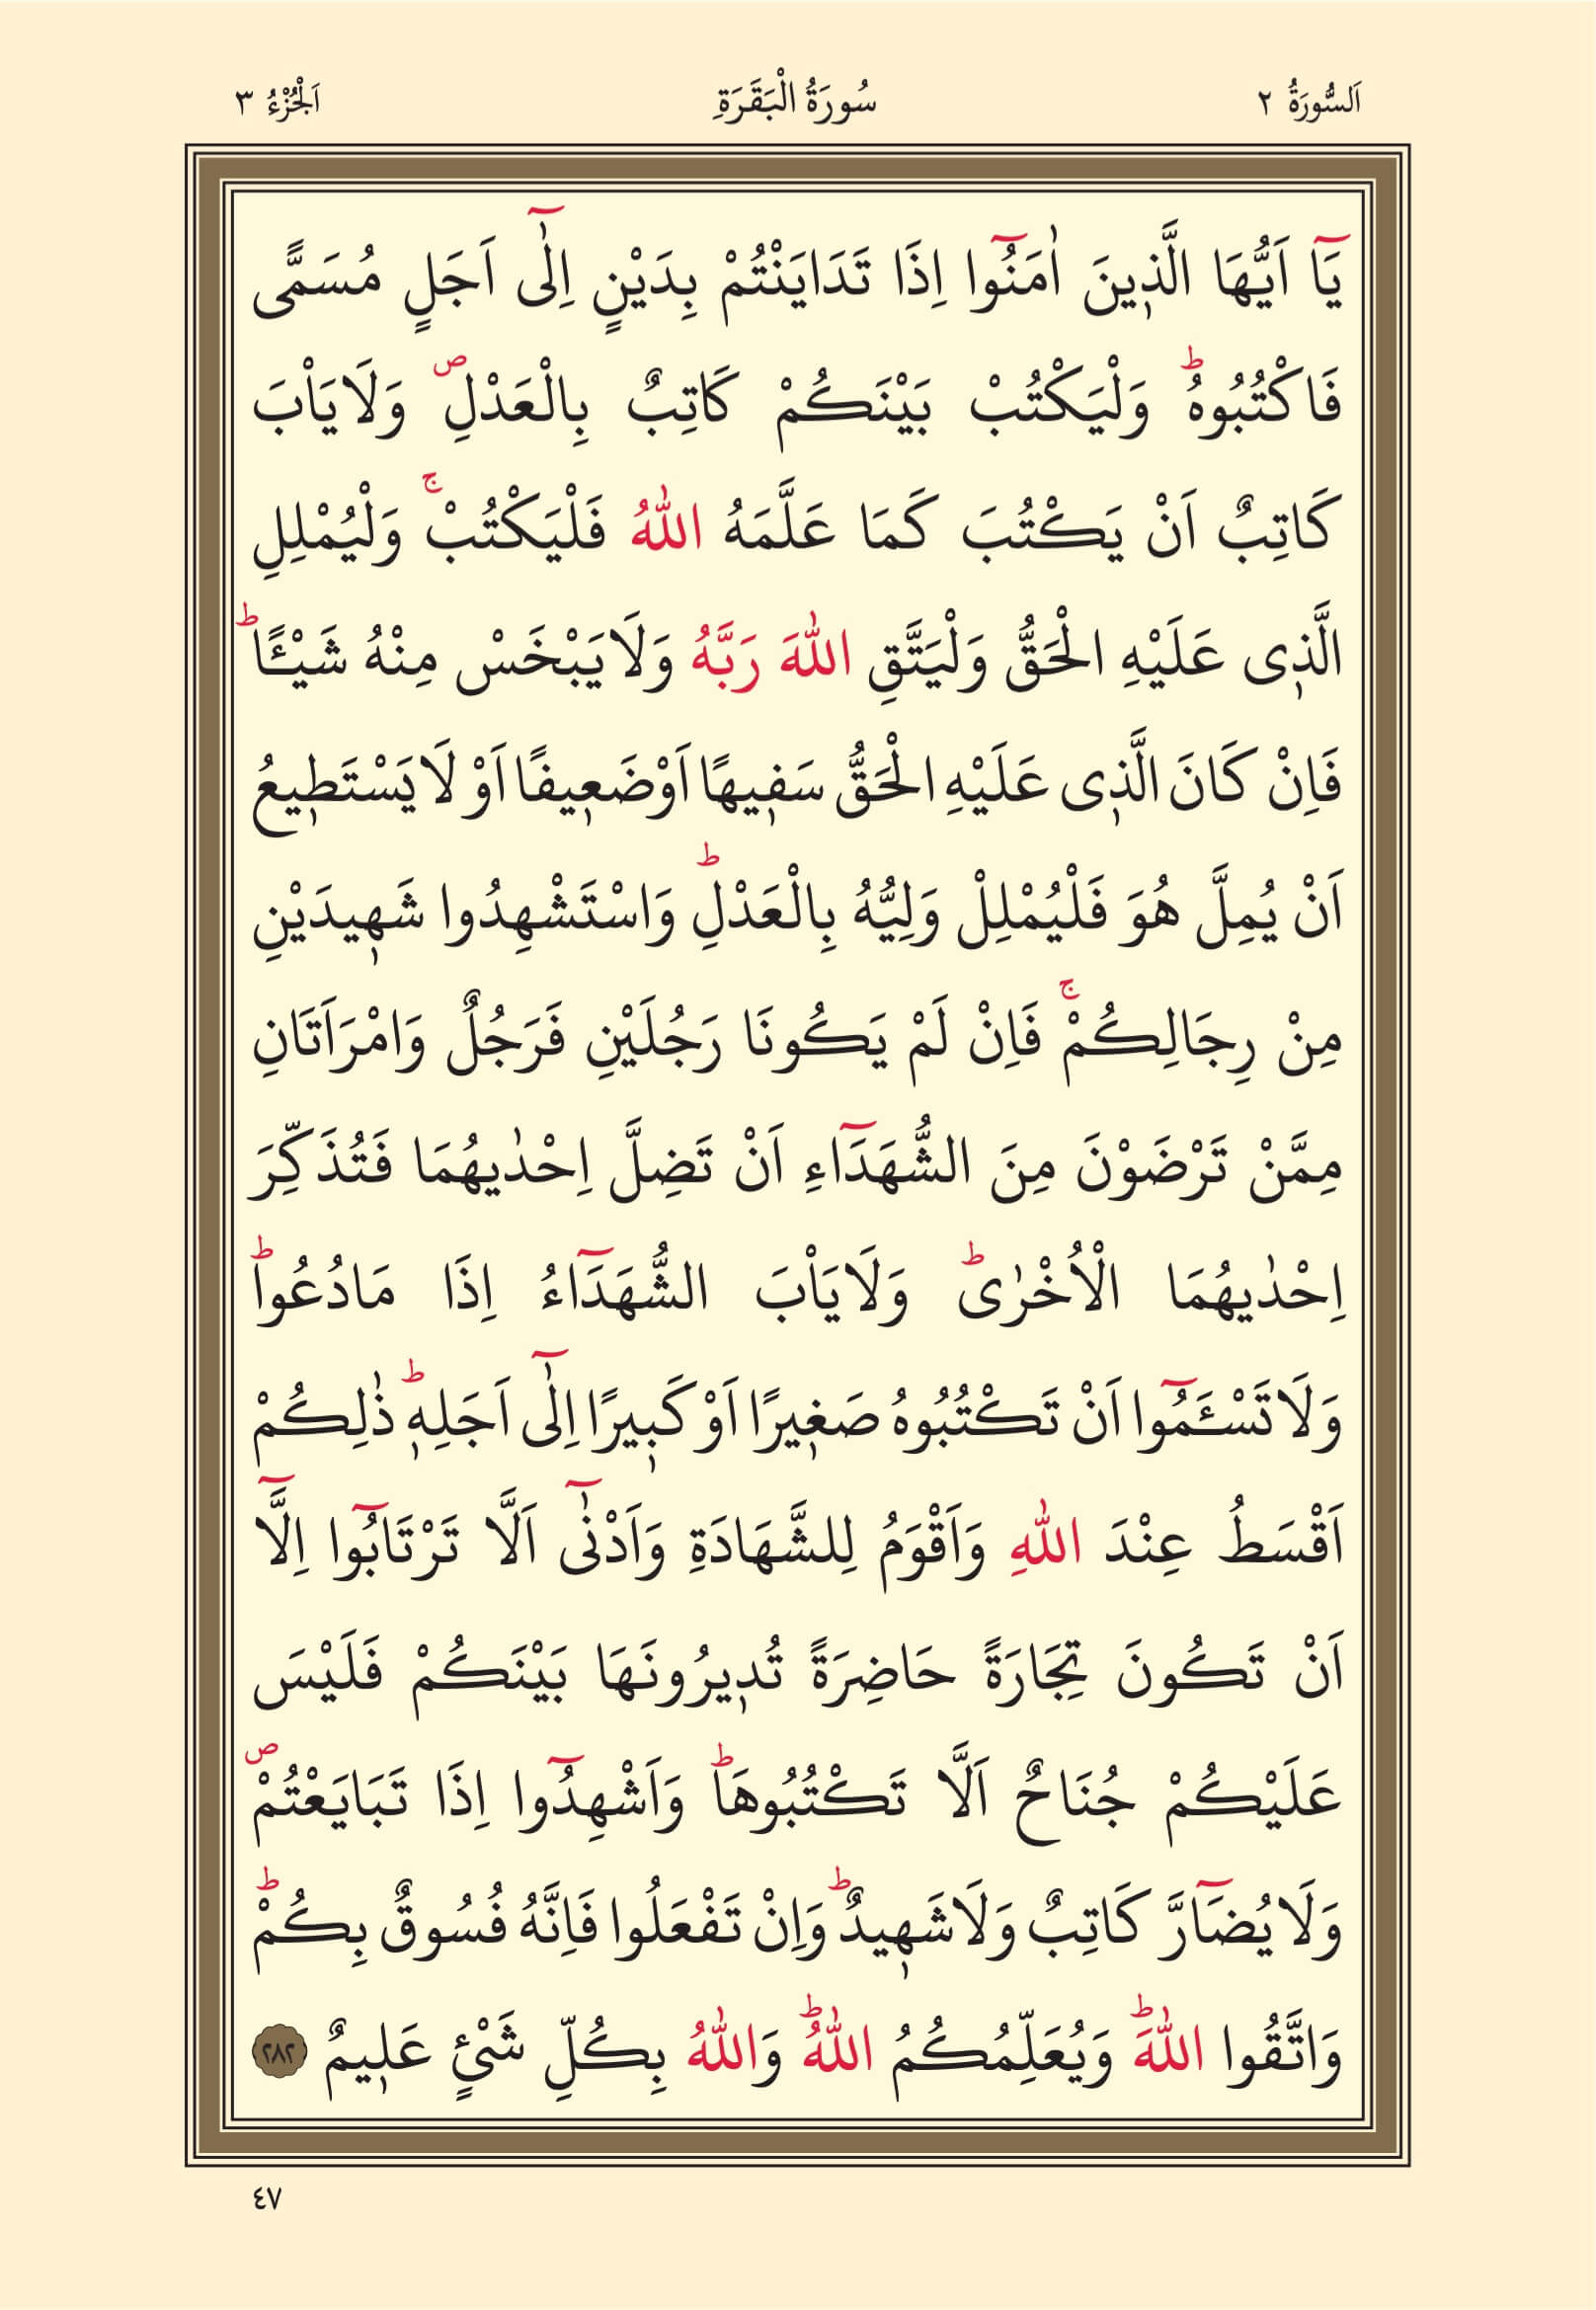 اَلسُّورَةُ ٢ سُورَةُ الْبَقَرَةِ اَلْجُزْءُ ٣
يَٓا اَيُّهَا الَّذ۪ينَ اٰمَنُٓوا اِذَا تَدَايَنْتُمْ بِدَيْنٍ اِلٰٓى اَجَلٍ مُسَمًّى
فَاكْتُبُوهُۜ وَلْيَكْتُبْ بَيْنَكُمْ كَاتِبٌ بِالْعَدْلِۖ وَلَا يَاْبَ
كَاتِبٌ اَنْ يَكْتُبَ كَمَا عَلَّمَهُ اللّٰهُ فَلْيَكْتُبْۚ وَلْيُمْلِلِ
الَّذ۪ى عَلَيْهِ الْحَقُّ وَلْيَتَّقِ اللّٰهَ رَبَّهُ وَلَا يَبْخَسْ مِنْهُ شَيْـًٔاۜ
فَاِنْ كَانَ الَّذ۪ى عَلَيْهِ الْحَقُّ سَف۪يهًا اَوْ ضَع۪يفًا اَوْ لَا يَسْتَط۪يعُ
اَنْ يُمِلَّ هُوَ فَلْيُمْلِلْ وَلِيُّهُ بِالْعَدْلِۜ وَاسْتَشْهِدُوا شَه۪يدَيْنِ
مِنْ رِجَالِكُمْۚ فَاِنْ لَمْ يَكُونَا رَجُلَيْنِ فَرَجُلٌ وَامْرَاَتَانِ
مِمَّنْ تَرْضَوْنَ مِنَ الشُّهَدَٓاءِ اَنْ تَضِلَّ اِحْدٰيهُمَا فَتُذَكِّرَ
اِحْدٰيهُمَا الْاُخْرٰىۜ وَلَا يَاْبَ الشُّهَدَٓاءُ اِذَا مَادُعُواۜ
وَلَا تَسْـَٔمُٓوا اَنْ تَكْتُبُوهُ صَغ۪يرًا اَوْ كَب۪يرًا اِلٰٓى اَجَلِه۪ۜ ذٰلِكُمْ
اَقْسَطُ عِنْدَ اللّٰهِ وَاَقْوَمُ لِلشَّهَادَةِ وَاَدْنٰٓى اَلَّا تَرْتَابُٓوا اِلَّٓا
اَنْ تَكُونَ تِجَارَةً حَاضِرَةً تُد۪يرُونَهَا بَيْنَكُمْ فَلَيْسَ
عَلَيْكُمْ جُنَاحٌ اَلَّا تَكْتُبُوهَاۜ وَاَشْهِدُٓوا اِذَا تَبَايَعْتُمْۖ
وَلَا يُضَٓارَّ كَاتِبٌ وَلَا شَه۪يدٌۜ وَاِنْ تَفْعَلُوا فَاِنَّهُ فُسُوقٌ بِكُمْۜ
وَاتَّقُوا اللّٰهَۜ وَيُعَلِّمُكُمُ اللّٰهُۜ وَاللّٰهُ بِكُلِّ شَىْءٍ عَل۪يمٌ ٢٨٢
٤٧